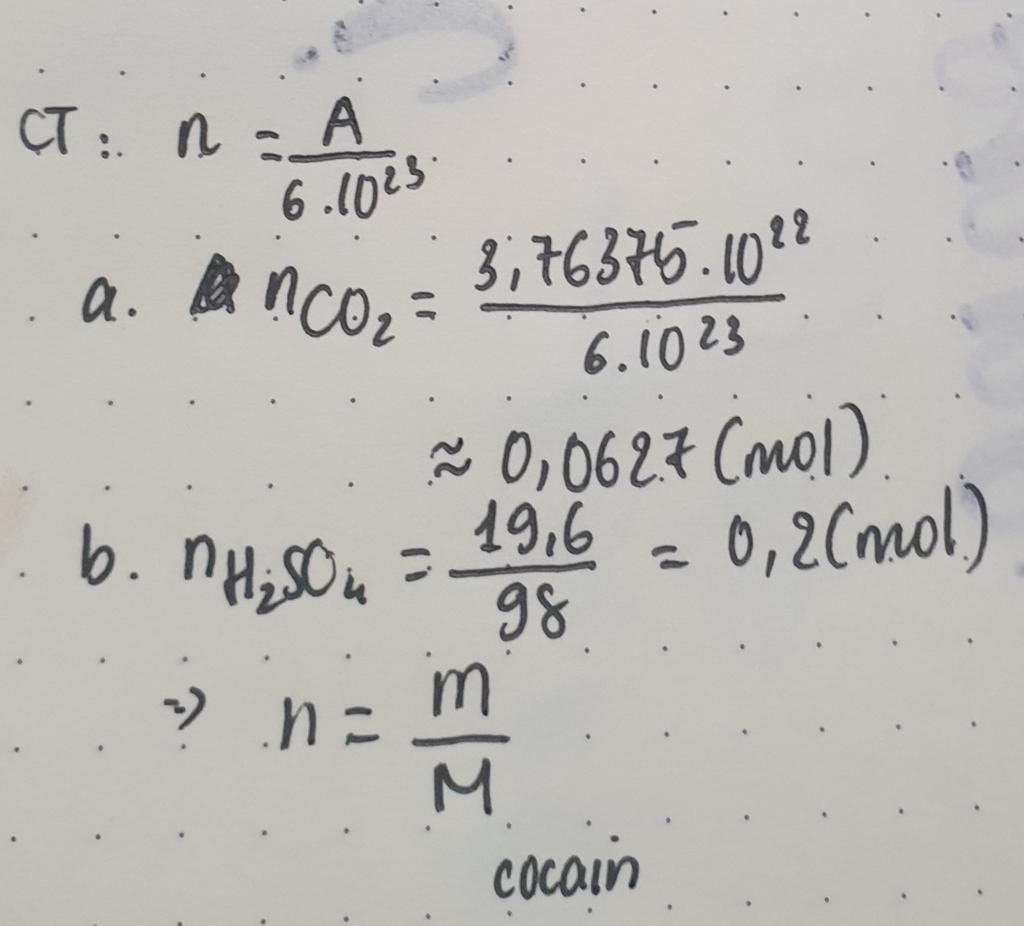 CT: n = A / 6.10²³
a. nCO₂ = 3,76375.10²² / 6.10²³
≈ 0,0627 (mol)
b. nH₂SO₄ = 19,6 / 98 = 0,2 (mol)
=> n = m / M
cocain